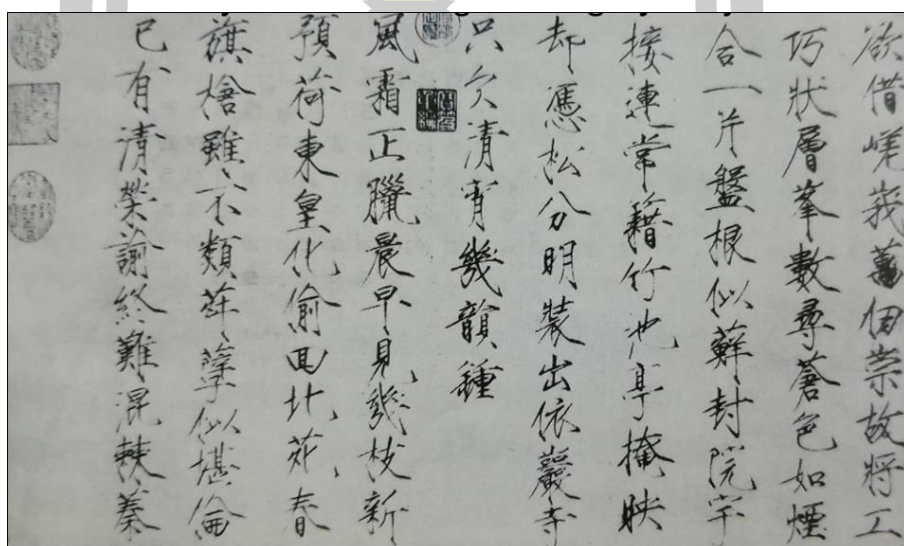 欲借嵯峩萬個崇故將工
巧狀層峯數尋蒼色如煙
合一片盤根似蘚封院宇
接連常籍竹池亭掩映
却憑松分明裝出依巖寺
只欠清宵幾韻鍾
風霜正臘晨早見幾枝新
預荷東皇化偷囬北苑春
旗槍雖不類荈孽似堪倫
已有清榮諭終難混棘蓁